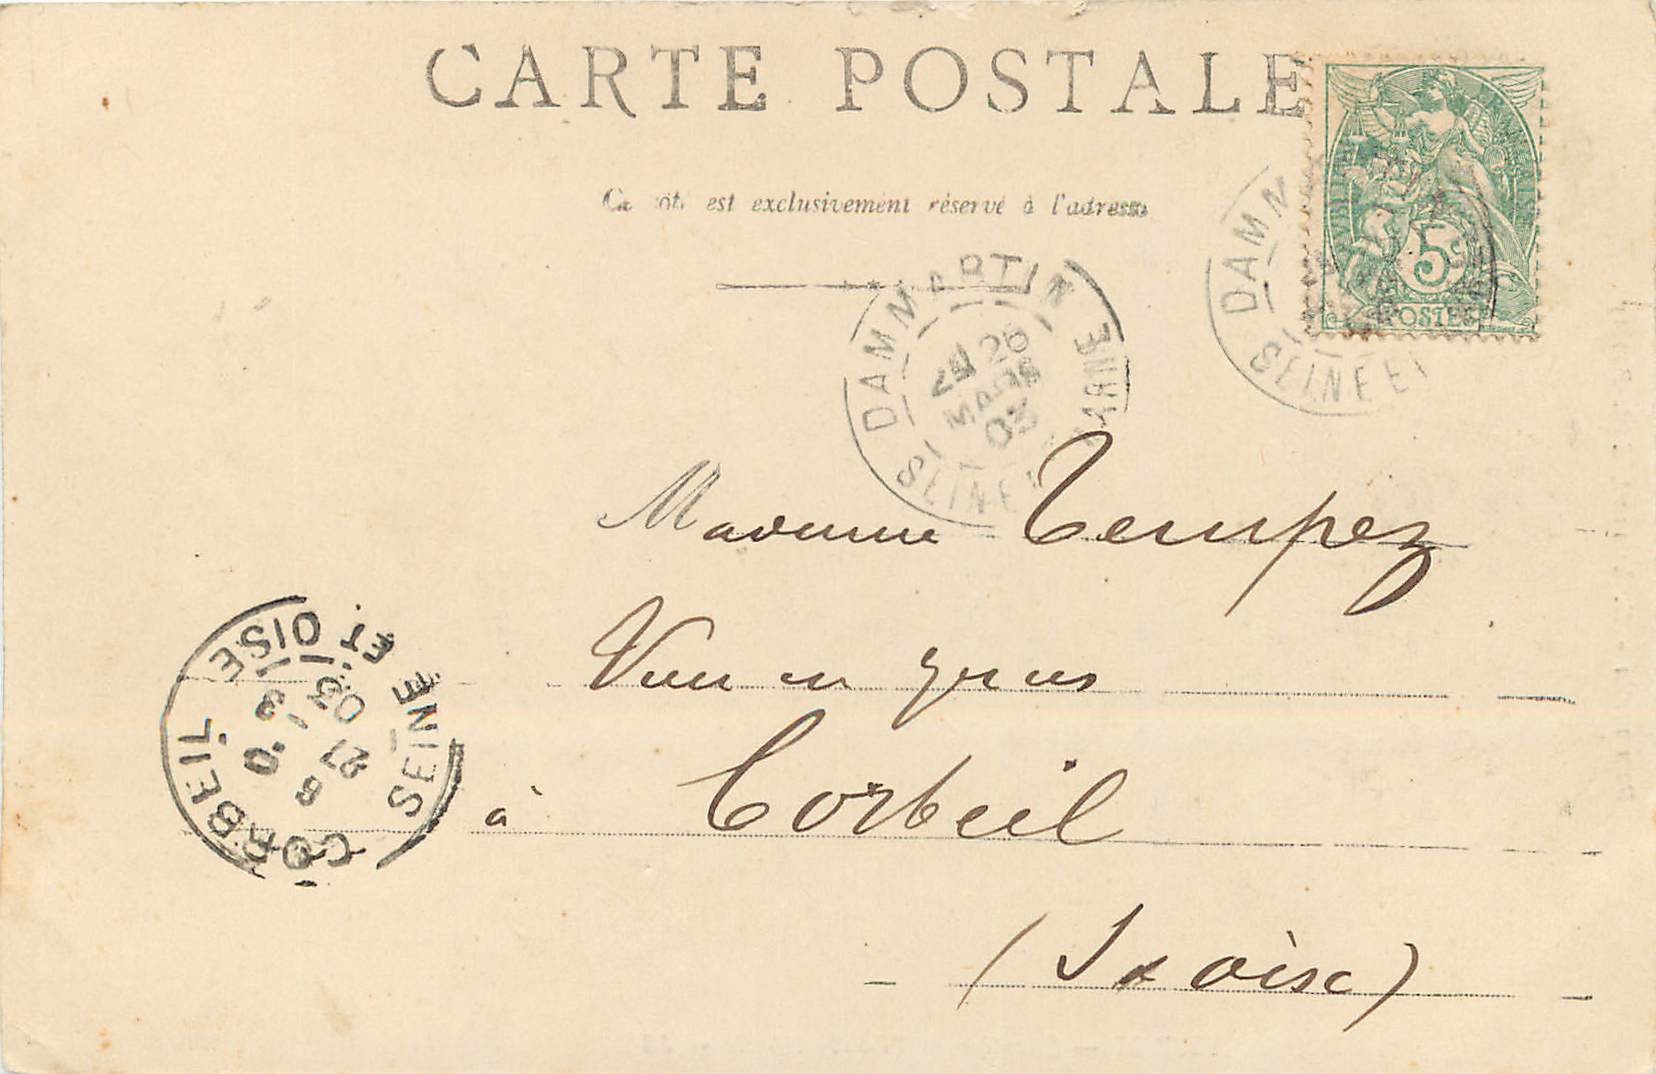 CARTE POSTALE
Ce côté est exclusivement réservé à l'adresse
DAMMARTIN
26
MARS
03
SEINE ET MARNE
DAMM
SEINE ET
5c
POSTES
Madame Tempez
Vins en gros
à Corbeil
(S & Oise)
CORBEIL
SEINE ET OISE
27
03